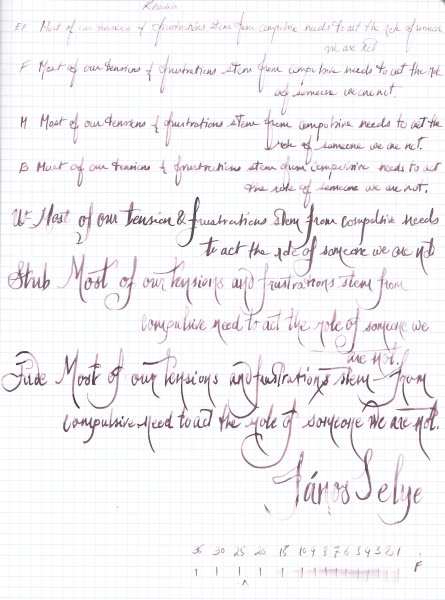 EF Most of our tensions & frustrations stem from compulsive needs to act the role of someone
we are not
F Most of our tensions & frustrations stem from compulsive needs to act the role
of someone we are not.
M Most of our tensions & frustrations stem from compulsive needs to act the
role of someone we are not.
B Most of our tensions & frustrations stem from compulsive needs to act
the role of someone we are not.
Most of our tension & frustrations stem from compulsive needs
to act the role of someone we are not
Stub Most of our tensions and frustrations stem from
compulsive need to act the role of someone we
are not.
Fude Most of our tensions and frustrations stem from
compulsive need to act the role of someone we are not.
János Selye
35 30 25 20 15 10 9 8 7 6 5 4 3 2 1
F